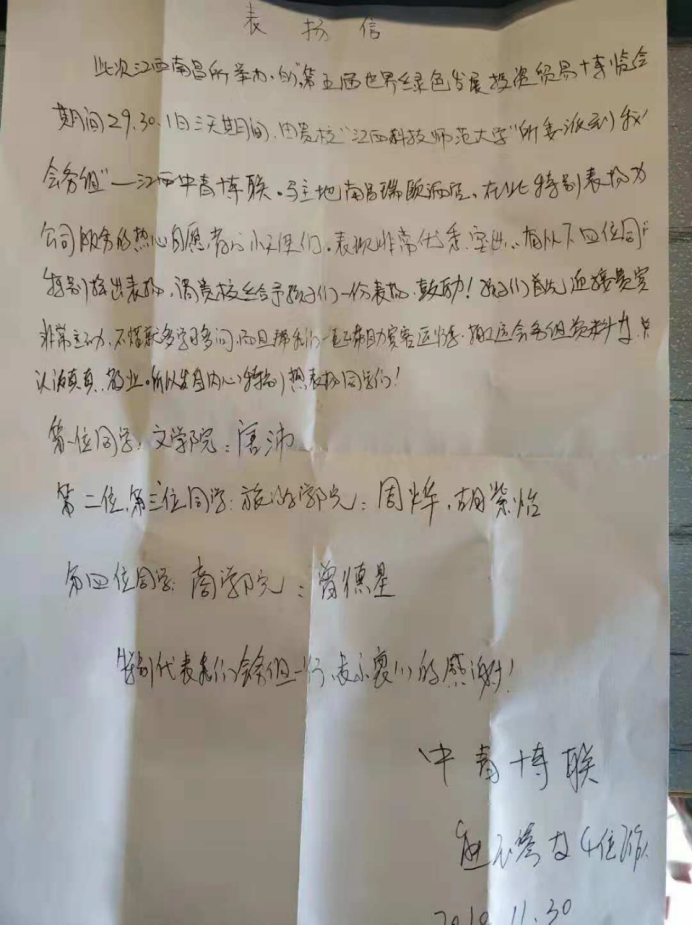 表扬信
此次江西南昌所举办的"第五届世界绿色发展投资贸易博览会
期间29.30.1日三天期间,由贵校"江西科技师范大学"所委派到我"
会务组"—江西中青博联。马主地南昌瑞颐酒店。在此特别表扬为
公司服务的热心自愿者小天使们。表现非常优秀,突出。有以下四位同学
特别提出表扬,请贵校给予孩子们一份表扬,鼓励!孩子们首先迎接贵宾
非常主动,不懂就多学习多问,而且帮我们一起帮助宾客运行李,搬运会务组资料
认认真真,敬业。所以发自内心特别表扬同学们!
第一位同学:文学院:唐沛
第二位,第三位同学:旅游学院:周烨,胡紫怡
第四位同学:商学院:曾德星
特别代表我们会务组一行,表示衷心的感谢!
中青博联
4位
11.30